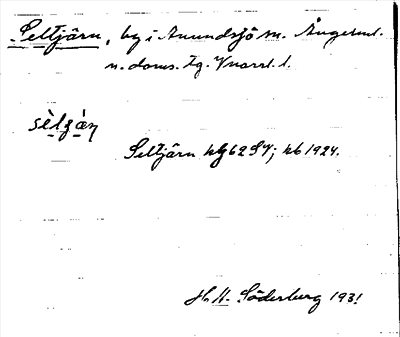 Seltjärn, by i Anundsjö sn. Ångerml.
n. doms. tg. Vnorrl. l.
sèlʒàn
Seltjärn kbg 62 SV; kb 1924.
H. H. Söderberg 1931